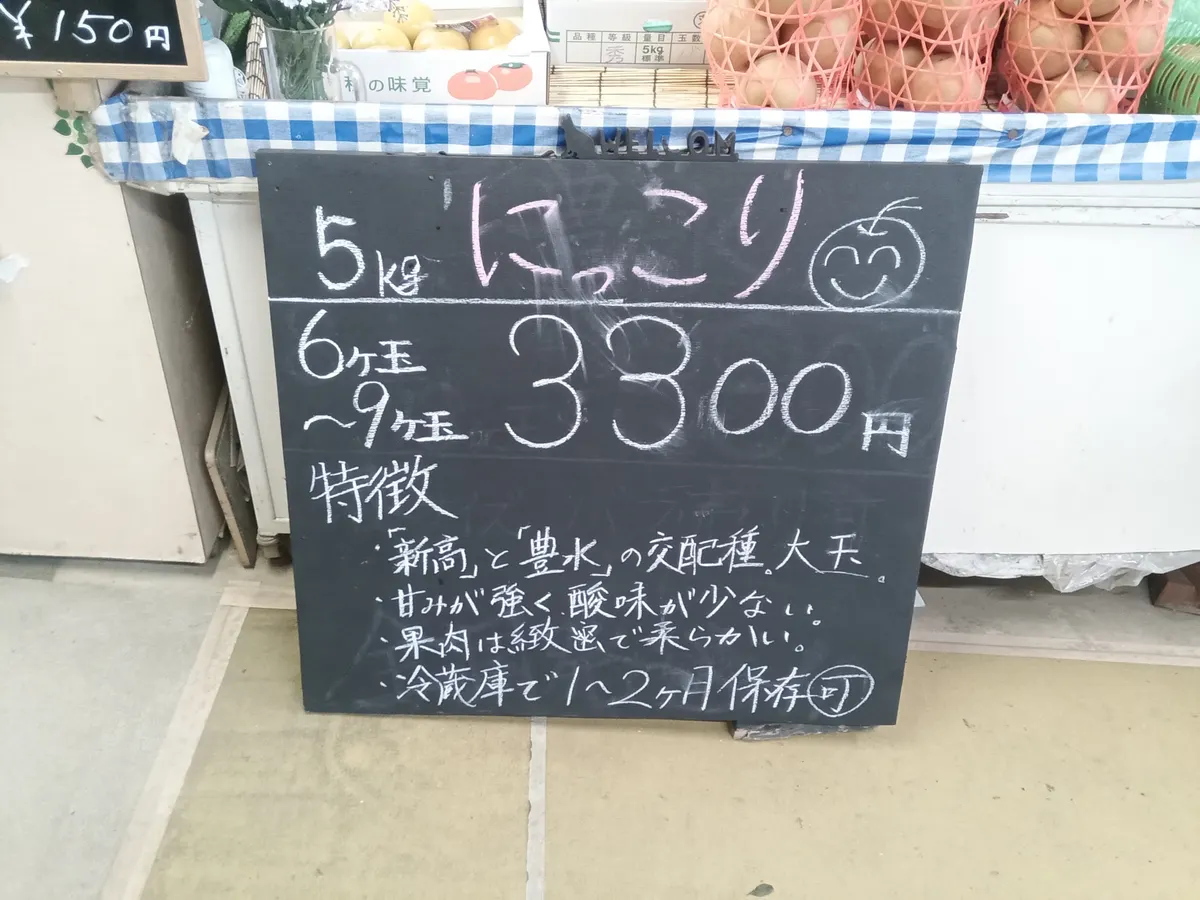 ¥150円
秋の味覚
品種 等級 量目 玉数
秀 5kg 標準
WELCOM
5kg にっこり
6ヶ玉
～9ヶ玉 3300円
特徴
・「新高」と「豊水」の交配種。大玉。
・甘みが強く酸味が少ない。
・果肉は緻密で柔らかい。
・冷蔵庫で1～2ヶ月保存可